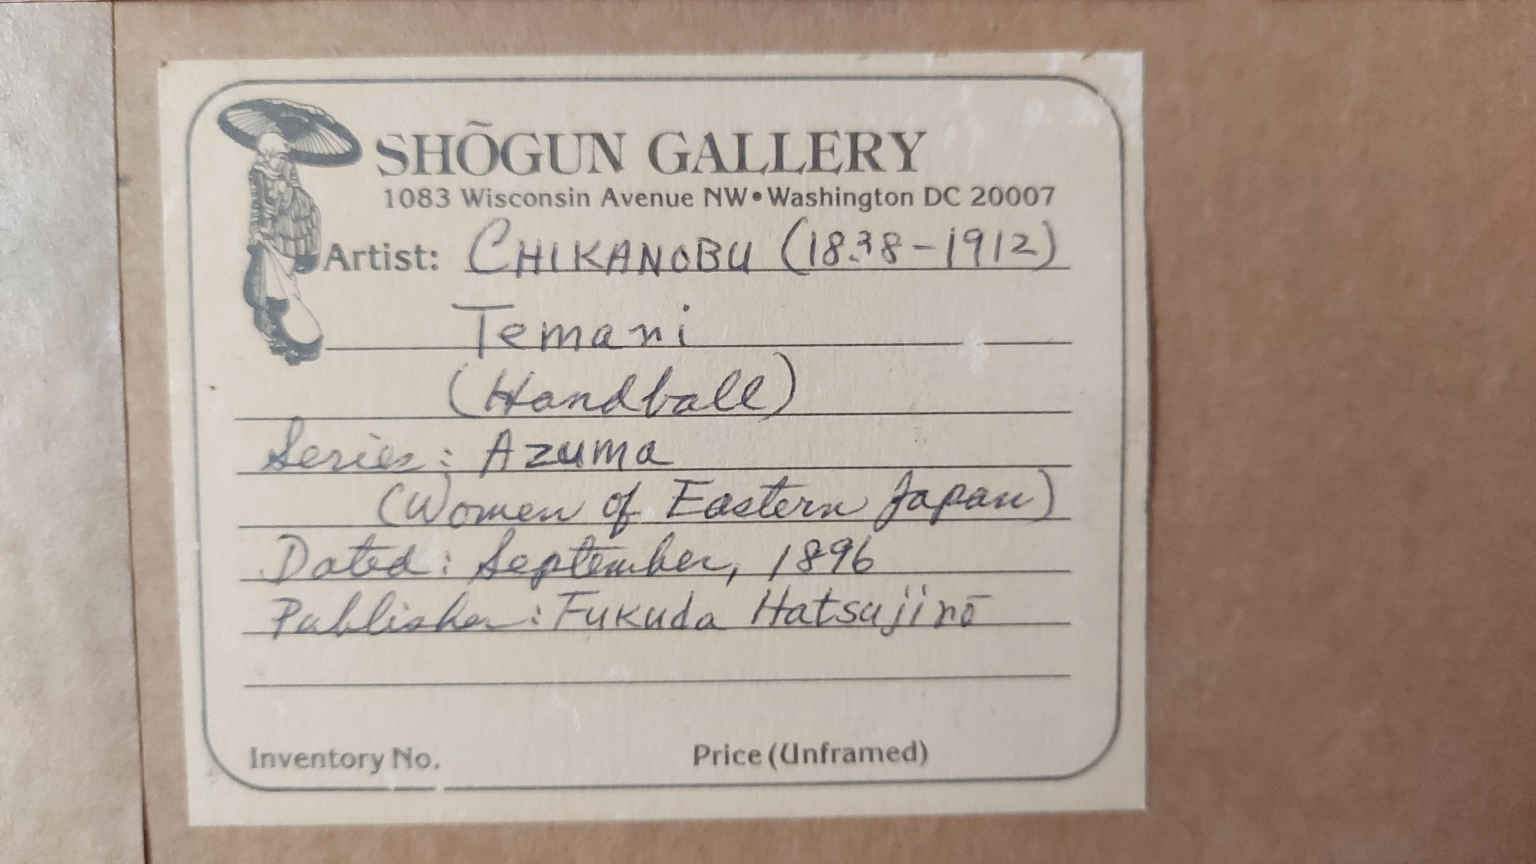 SHŌGUN GALLERY
1083 Wisconsin Avenue NW•Washington DC 20007
Artist: CHIKANOBU (1838-1912)
Temari
(Handball)
Series: Azuma
(Women of Eastern Japan)
Dated: September, 1896
Publisher: Fukuda Hatsujirō
Inventory No. Price (Unframed)